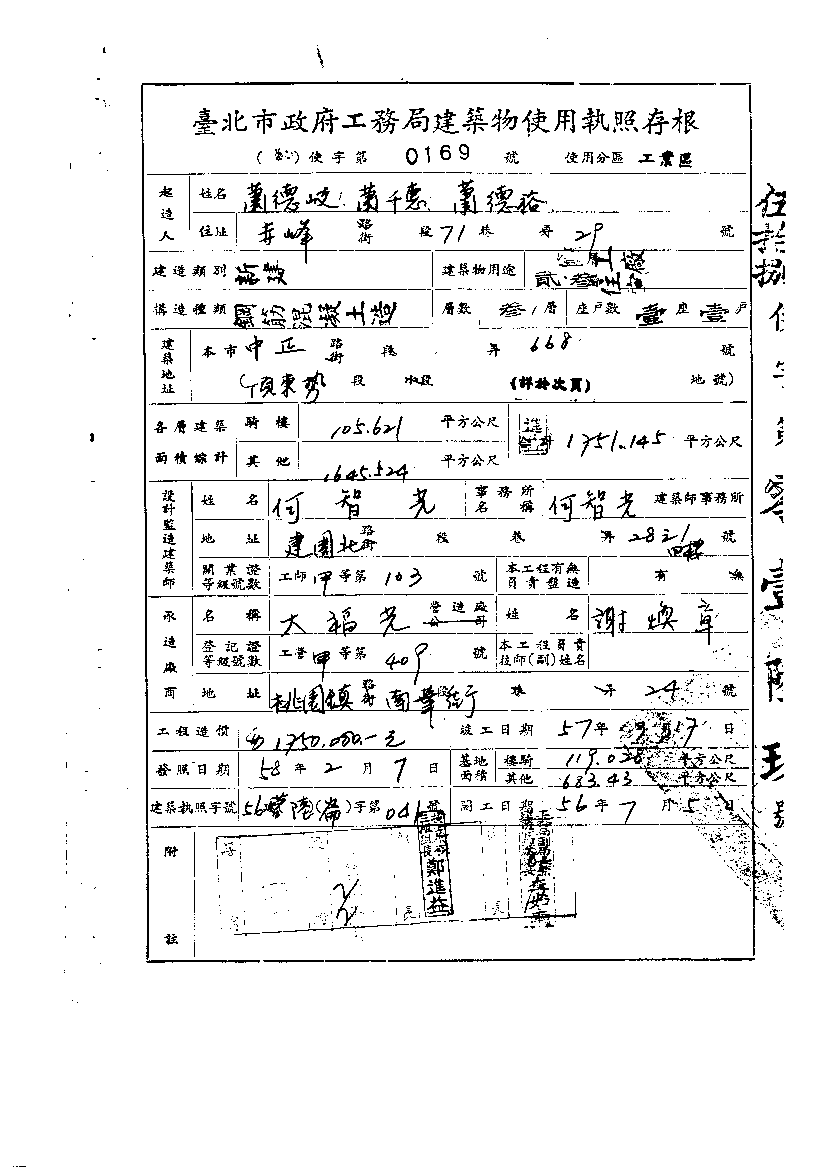 臺北市政府工務局建築物使用執照存根
( )使字第 0169 號 使用分區 工業區
起造人 姓名 蕭德岐 蕭千惠 蕭德裕
住址 赤峰 路街 段 71 巷 弄 29 號
建造類別 新建 建築物用途 壹層工廠 貳.叁住宅
構造種類 鋼筋混凝土造 層數 叁 層 座戶數 壹 座 壹 戶
建築地址 本市 中正 路街 段 弄 668 號
(頂東勢 段 小段 (詳於次頁) 地號)
各層建築面積綜計 騎樓 105.621 平方公尺 1751.145 平方公尺
其他 1645.524 平方公尺
設計監造建築師 姓名 何智光 事務所名稱 何智光 建築師事務所
地址 建國北 路街 段 巷 弄 2821 號 四樓
開業證等級號數 工師 甲 等第 103 號 本工程有無負責監造 有 無
承造廠商 名稱 大福光 營造廠公司 姓名 謝煥章
登記證等級號數 工營 甲 等第 409 號 本工程負責技師(副)姓名
地址 桃園鎮 路街 南華街 段 巷 弄 24 號
工程造價 1750.000.-元 竣工日期 57 年 9 月 17 日
發照日期 58 年 2 月 7 日 基地面積 樓騎 119.028 平方公尺
其他 683.43 平方公尺
建築執照字號 56 字第 041 號 開工日期 56 年 7 月 5 日
附註
鄭進益
伍拾捌使字第零壹陸玖號